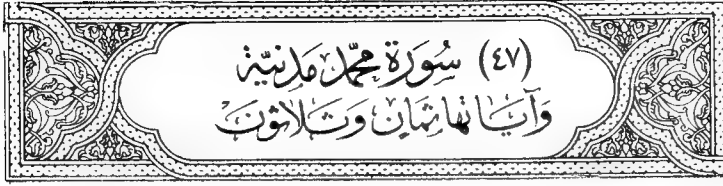 (٤٧) سُورَة محمّد مَدنيّة
وَآيَاتهَا ثَمَان وَثَلاثونَ